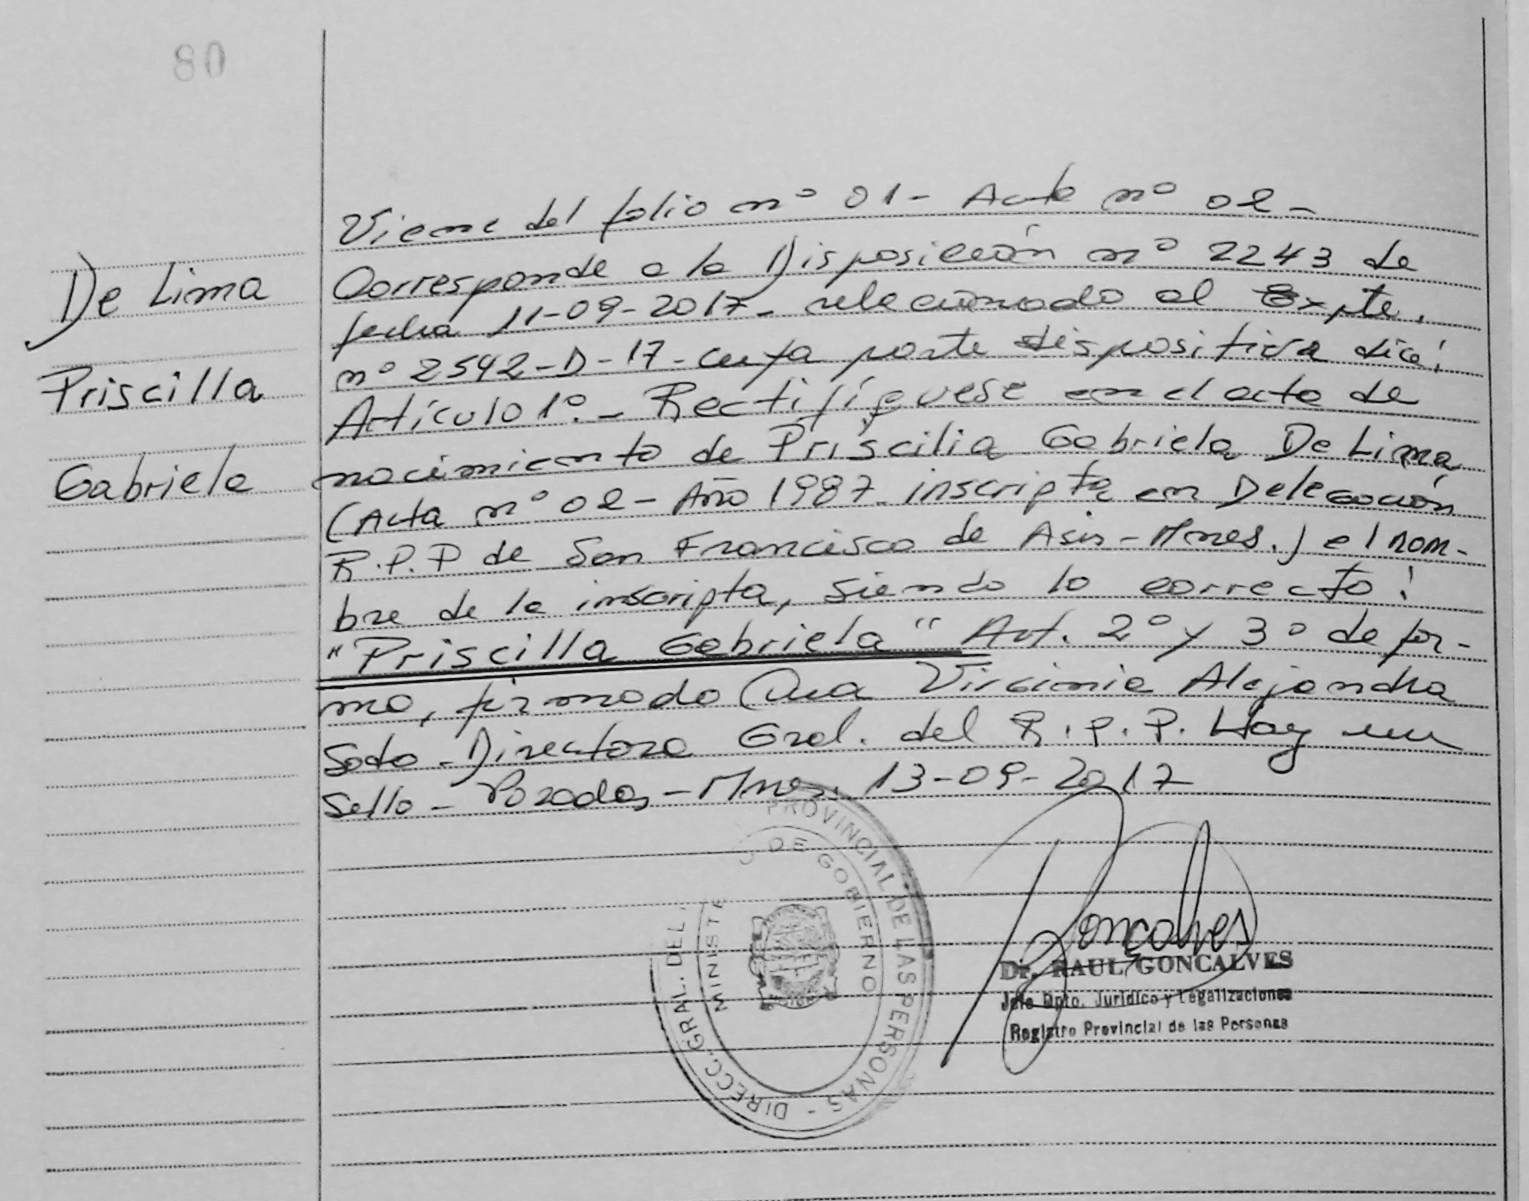 80
De Lima
Priscilla
Gabriela
Viene del folio nº 01 - Acta nº 02 -
Corresponde a la Disposición nº 2243 de
fecha 11-09-2017 - relacionado al Expte.
nº 2542-D-17 - cuya parte dispositiva dice:
Artículo 1º.- Rectifíquese en el acta de
nacimiento de Priscilia Gabriela De Lima
(Acta nº 02 - Año 1987 inscripta en Delegación
R.P.P de San Francisco de Asis - Mnes.) el nom-
bre de la inscripta, siendo lo correcto:
"Priscilla Gabriela" Art. 2º y 3º de for-
ma, firmado Virginia Alejandra
Soto - Directora Gral. del R.P.P. Hay un
Sello - Posadas - Mnes. 13-09-2017
DIRECC. GRAL. DEL PROVINCIAL DE LAS PERSONAS -
MINISTE O DE GOBIERNO
Goncalves
Dr. RAUL GONCALVES
Jefe Dpto. Jurídico y Legalizaciones
Registro Provincial de las Personas